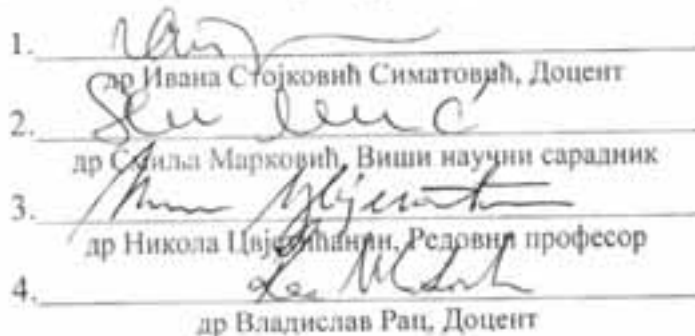 1.
др Ивана Стојковић Симатовић, Доцент
2.
др Смиља Марковић, Виши научни сарадник
3.
др Никола Цвјетићанин, Редовни професор
4.
др Владислав Рац, Доцент